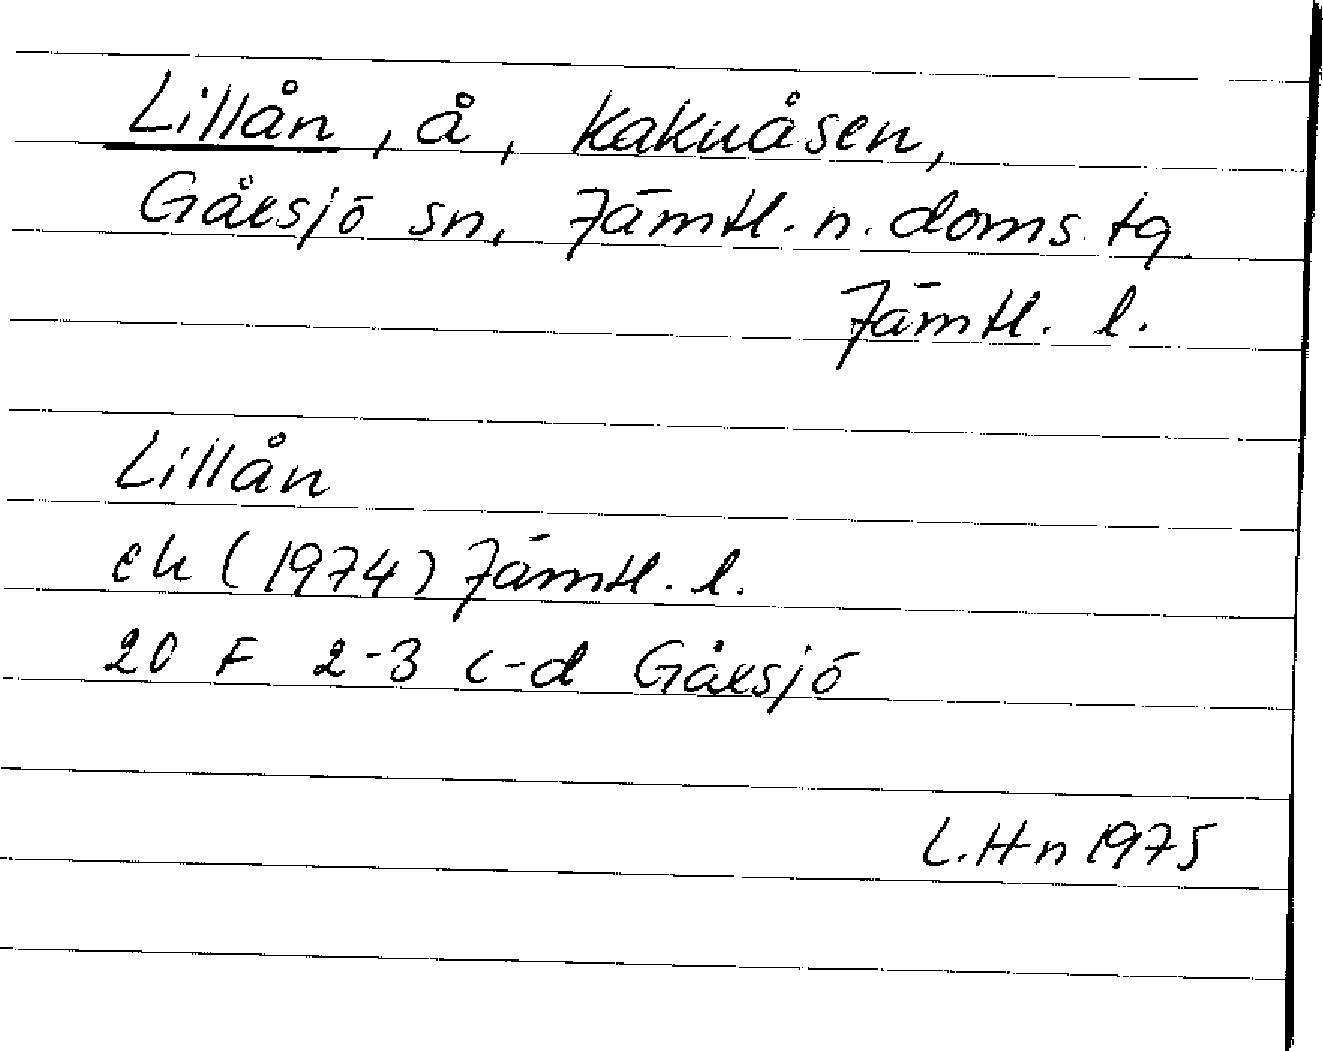 Lillån, å, Kakuåsen,
Gåxsjö sn, Jämtl. n. doms. tg
Jämtl. l.
Lillån
ek (1974) Jämtl. l.
20 F 2-3 c-d Gåxsjö
L.Hn 1975